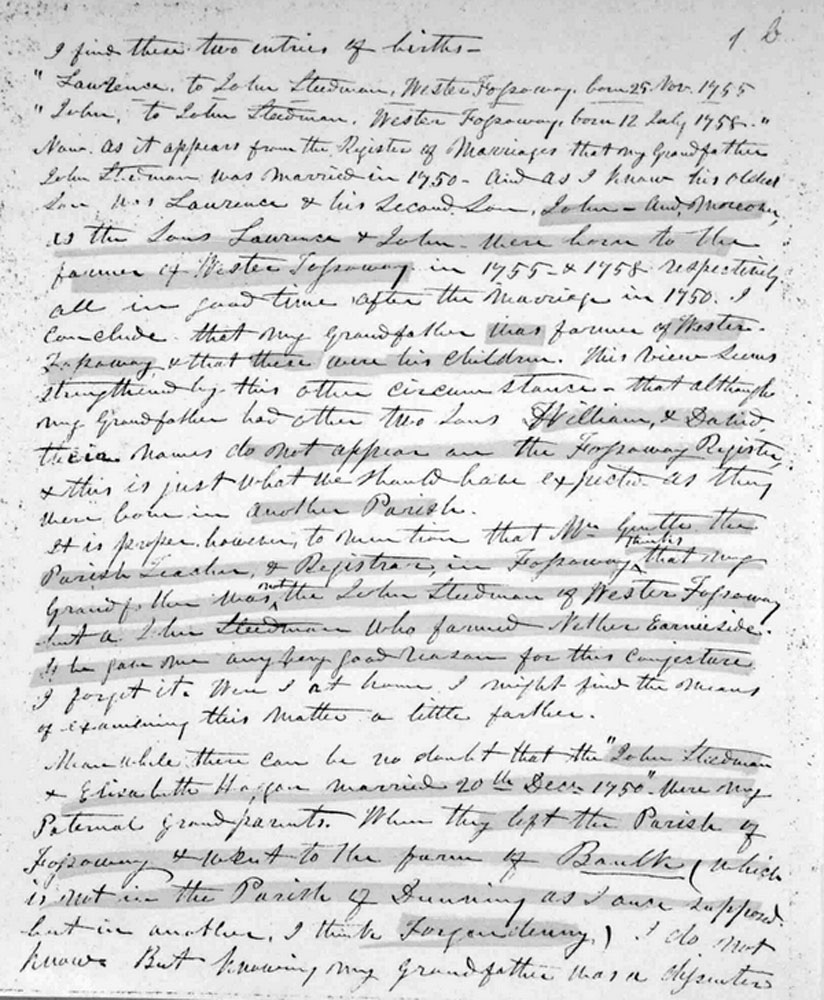 1 b
I find these two entries of births -
" Lawrence, to John Steedman, Wester Fossoway, born 25 Nov. 1755
" John, to John Steedman, Wester Fossoway, born 12 July 1758."
Now as it appears from the Register of Marriages that my Grandfather
John Steedman was married in 1750 - And as I know his oldest
Son was Lawrence & his Second Son, John - And, Moreover,
as the Sons Lawrence & John were born to the
farmer of Wester Fossoway in 1755 & 1758 respectively,
all in good time after the marriage in 1750. I
conclude that my Grandfather was farmer of Wester
Fossoway & that these were his children. This view seems
strengthened by this other circumstance - that although
my Grandfather had other two Sons William, & David,
their names do not appear on the Fossoway Register,
& this is just what we should have expected as they
were born in another Parish.
It is proper, however, to mention that Mr Gentle the
Parish Teacher, & Registrar, in Fossoway thinks that my
Grandfather was not the John Steedman of Wester Fossoway
but a John Steedman who farmed Nether Earnieside.
If he gave me any very good reason for this conjecture
I forget it. Were I at home I might find the means
of examining this matter a little farther.
Meanwhile there can be no doubt that the "John Steedman
& Elisabeth Haggan married 20th Decr. 1750" were my
Paternal Grandparents. When they left the Parish of
Fossoway & went to the farm of Baulk (which
is not in the Parish of Dunning as I once supposed
but in another, I think Forgandenny) I do not
know. But knowing my Grandfather was a dissenter